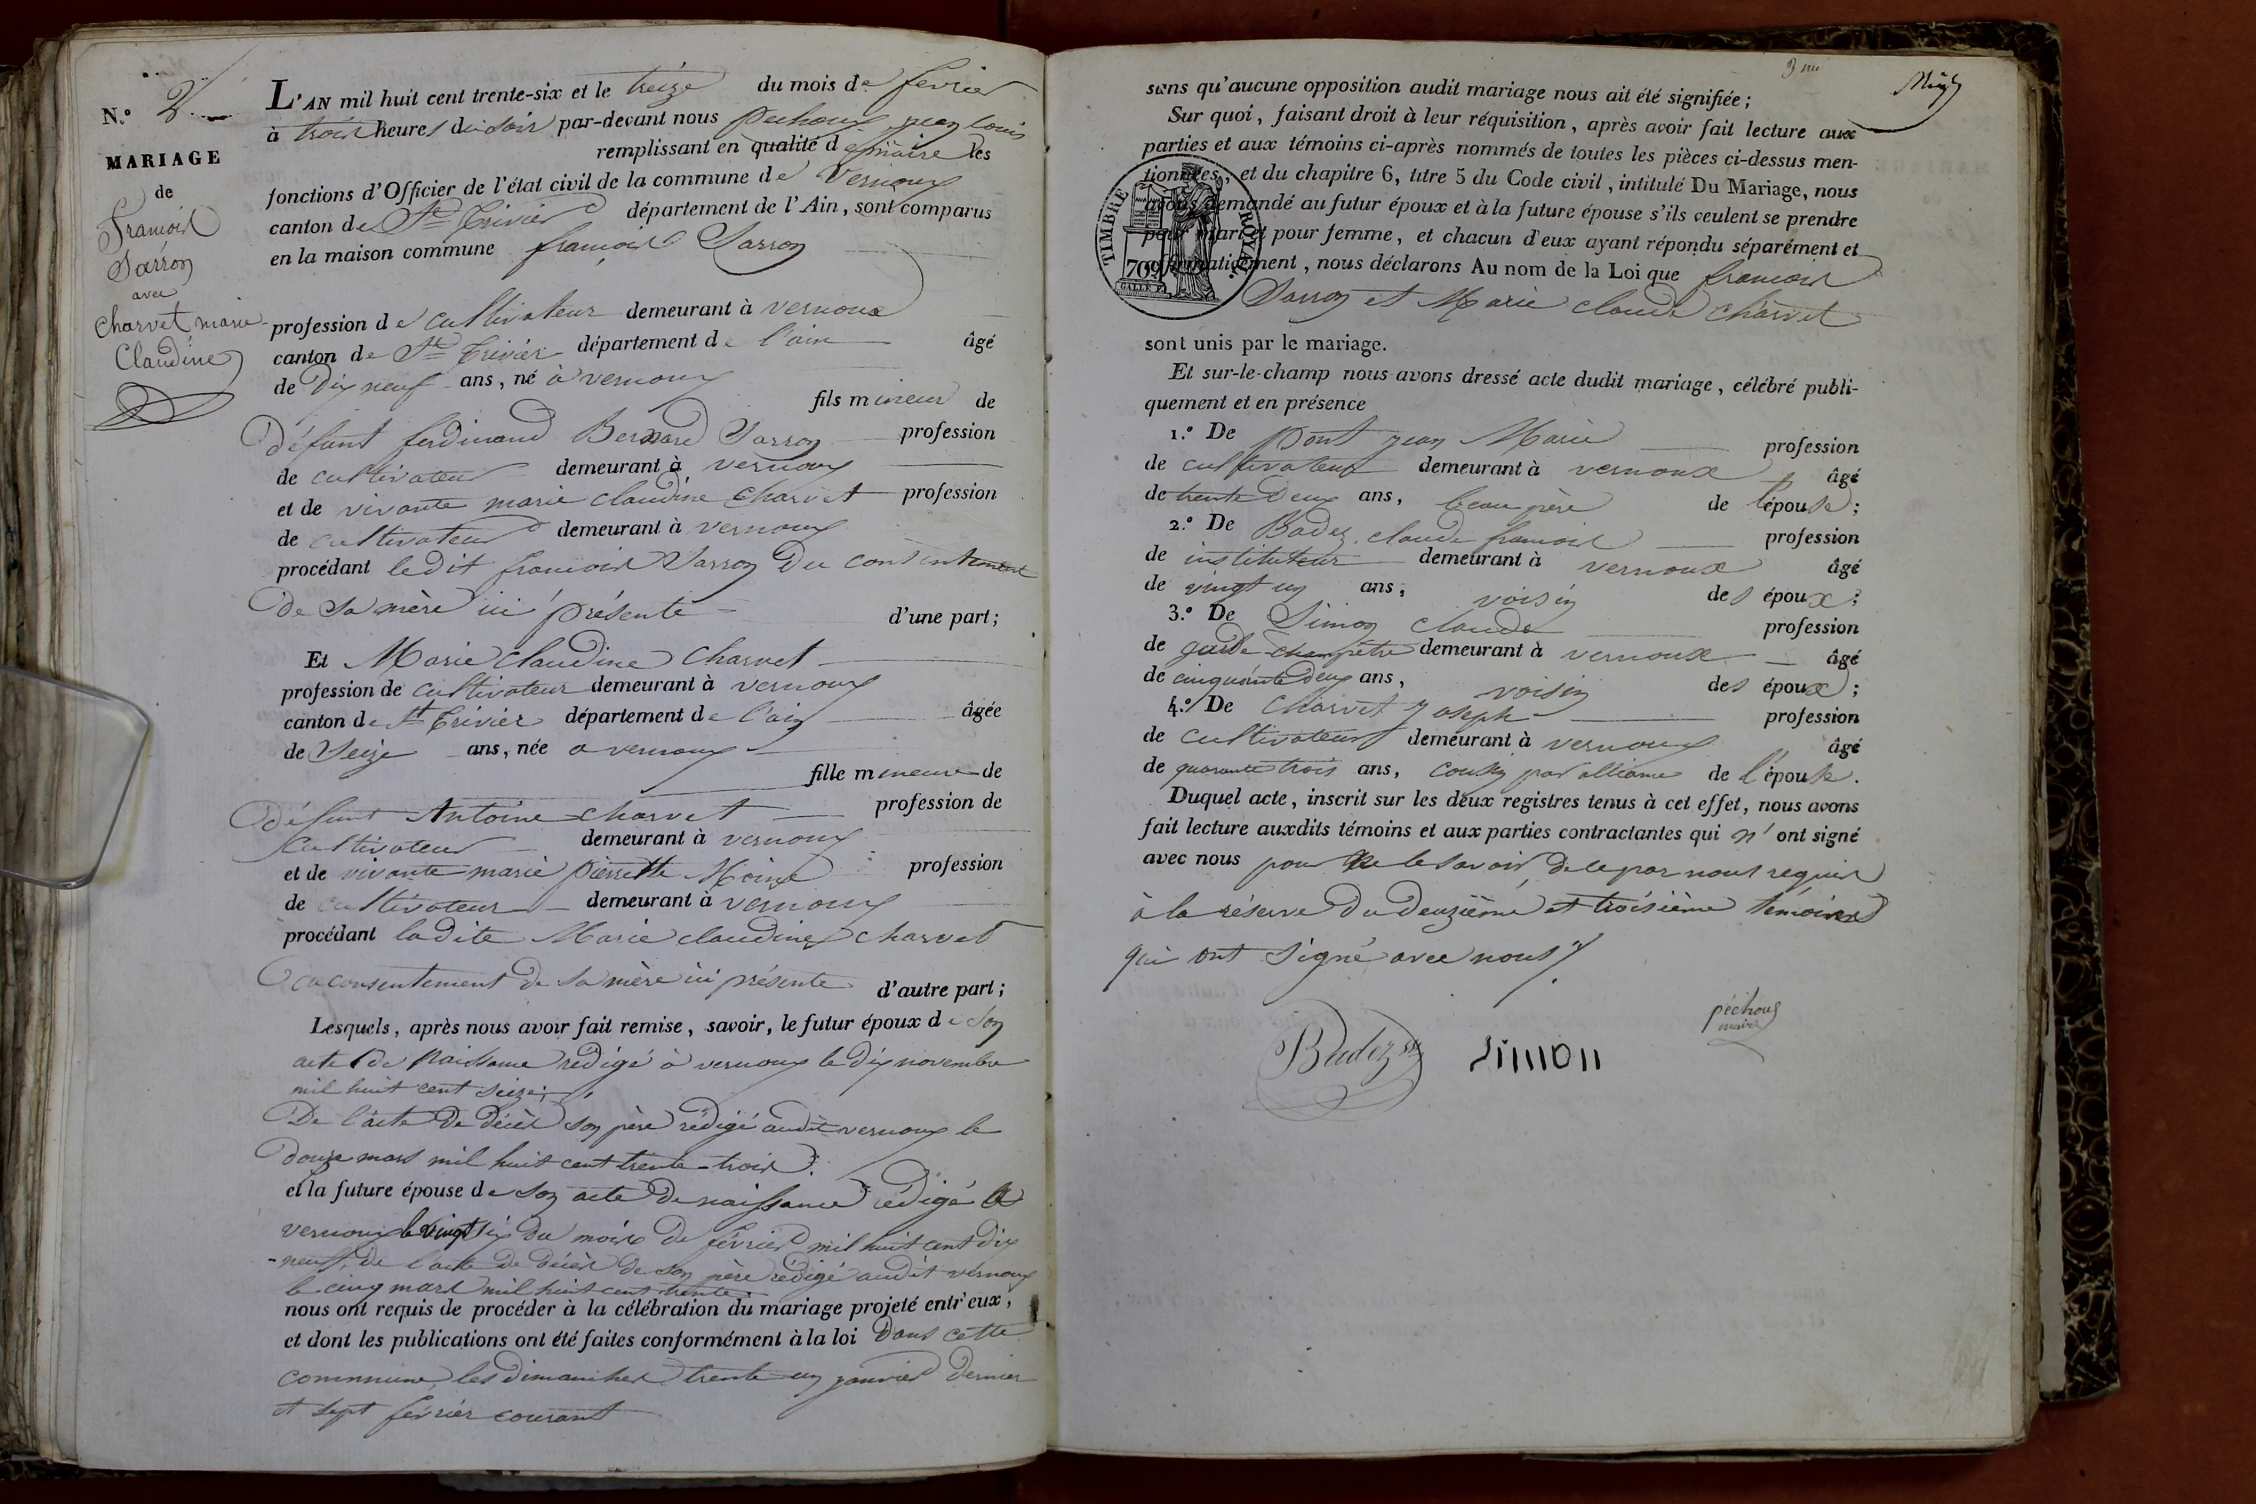 N.o 2
MARIAGE
de
francois
Sarron
avec
Charvet marie
Claudine
L'AN mil huit cent trente-six et le treize du mois de fevrier
à trois heures du soir par-devant nous pechoux jean louis
remplissant en qualité de maire les
fonctions d'Officier de l'état civil de la commune de vernoux
canton de St Trivier département de l'Ain, sont comparus
en la maison commune francois Sarron
profession de cultivateur demeurant à vernoux
canton de St Trivier département de l'ain âgé
de Dix neuf ans, né à vernoux
fils mineur de
défunt ferdinand Bernard Sarron profession
de cultivateur demeurant à vernoux
et de vivante marie claudine charvet profession
de cultivateur demeurant à vernoux
procédant ledit francois Sarron Du consentement
De sa mère ici présente d'une part;
Et Marie claudine charvet
profession de cultivateur demeurant à vernoux
canton de St Trivier département de l'ain âgée
de Seize ans, née a vernoux
fille mineure de
défunt Antoine charvet profession de
cultivateur demeurant à vernoux
et de vivante marie pierrette Moine profession
de cultivateur demeurant à vernoux
procédant ladite Marie claudine charvet
Du consentement de sa mère ici présente d'autre part;
Lesquels, après nous avoir fait remise, savoir, le futur époux de son
acte de naissance rédigé à vernoux le dix novembre
mil huit cent seize;
De l'acte de décès son père rédigé audit vernoux le
douze mars mil huit cent trente-trois.
et la future épouse de son acte de naissance rédigé a
vernoux le vingt six du mois de février mil huit cent dix
-neuf, de l'acte de décès de son père rédigé audit vernoux
le cinq mars mil huit cent trente.
nous ont requis de procéder à la célébration du mariage projeté entr'eux,
et dont les publications ont été faites conformément à la loi dans cette
commune, les dimanches trente un janvier dernier
et sept février courant
sans qu'aucune opposition audit mariage nous ait été signifiée;
Sur quoi, faisant droit à leur réquisition, après avoir fait lecture aux
parties et aux témoins ci-après nommés de toutes les pièces ci-dessus men-
tionnées, et du chapitre 6, titre 5 du Code civil, intitulé Du Mariage, nous
avons demandé au futur époux et à la future épouse s'ils veulent se prendre
pour mari et pour femme, et chacun d'eux ayant répondu séparément et
affirmativement, nous déclarons Au nom de la Loi que francois
Sarron et Marie claude charvet
TIMBRE ROYAL
709
sont unis par le mariage.
Et sur-le-champ nous avons dressé acte dudit mariage, célébré publi-
quement et en présence
1.o De pont jean Marie profession
de cultivateur demeurant à vernoux âgé
de trente Deux ans, beau père de l'épouse;
2.o De Badez claude francois profession
de instituteur demeurant à vernoux âgé
de vingt un ans, voisin des époux;
3.o De Simon claude profession
de garde champetre demeurant à vernoux âgé
de cinquante Deux ans, voisin des époux;
4.o De Charvet Joseph profession
de cultivateur demeurant à vernoux âgé
de quarante trois ans, cousin par alliance de l'épouse.
Duquel acte, inscrit sur les deux registres tenus à cet effet, nous avons
fait lecture auxdits témoins et aux parties contractantes qui n'ont signé
avec nous pour ne le savoir, de ce par nous requis
à la réserve du deuzième et troisième témoins
qui ont signé avec nous
Badez Simon péchoux
maire